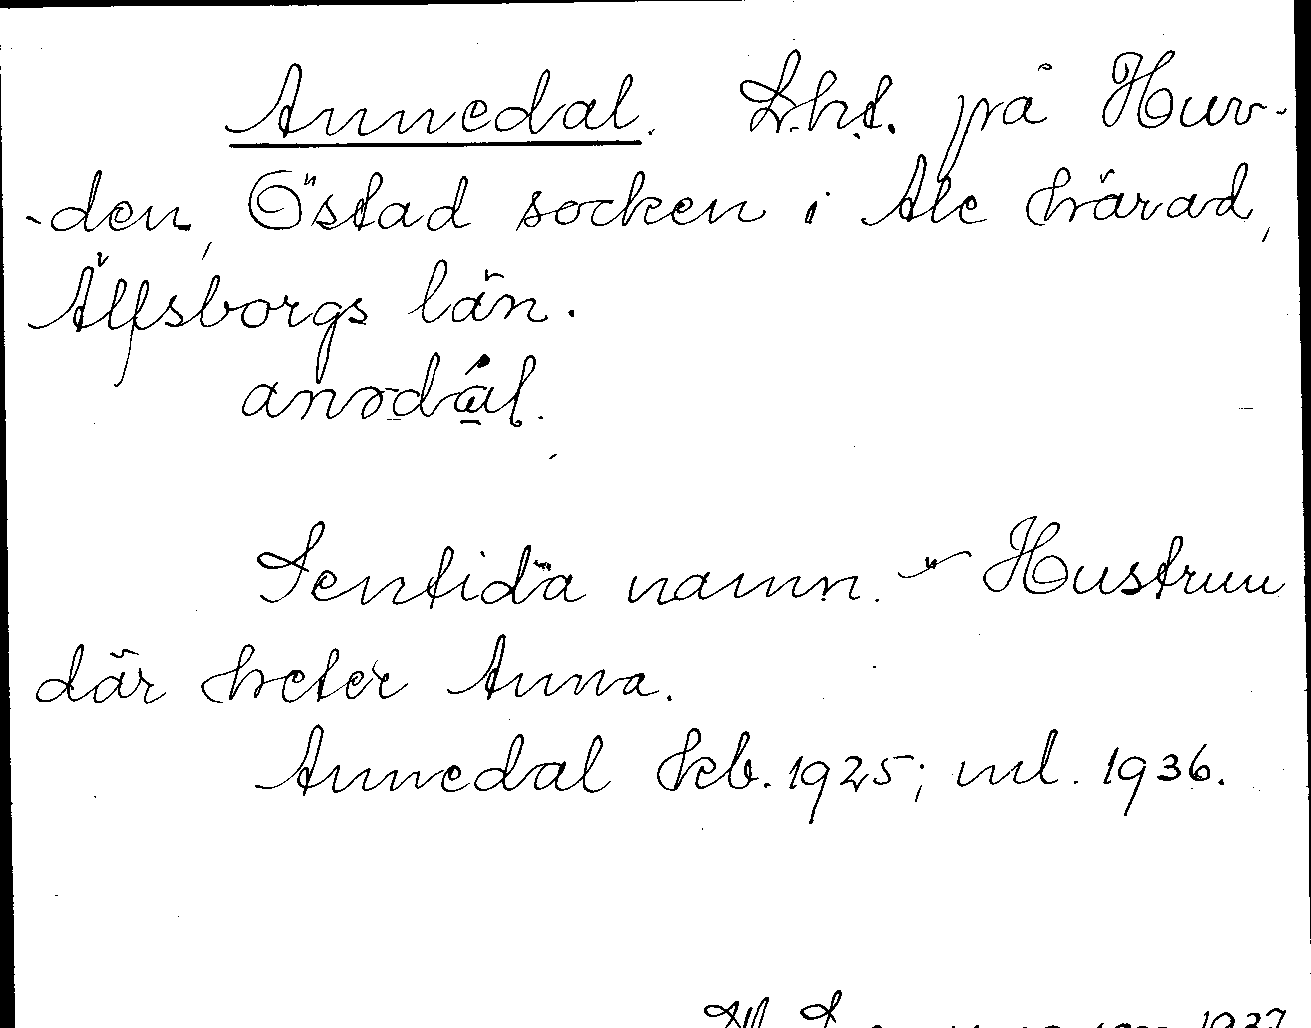 Annedal. Lht. på Huv-
-den, Östad socken i Ale härad,
Älfsborgs län.
Sentida namn. Hustrun
där heter Anna.
Annedal 1925; ml. 1936.
1937